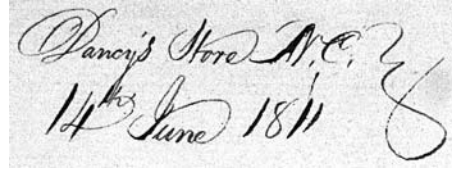 Dancy's Store N.C.
14th June 1811